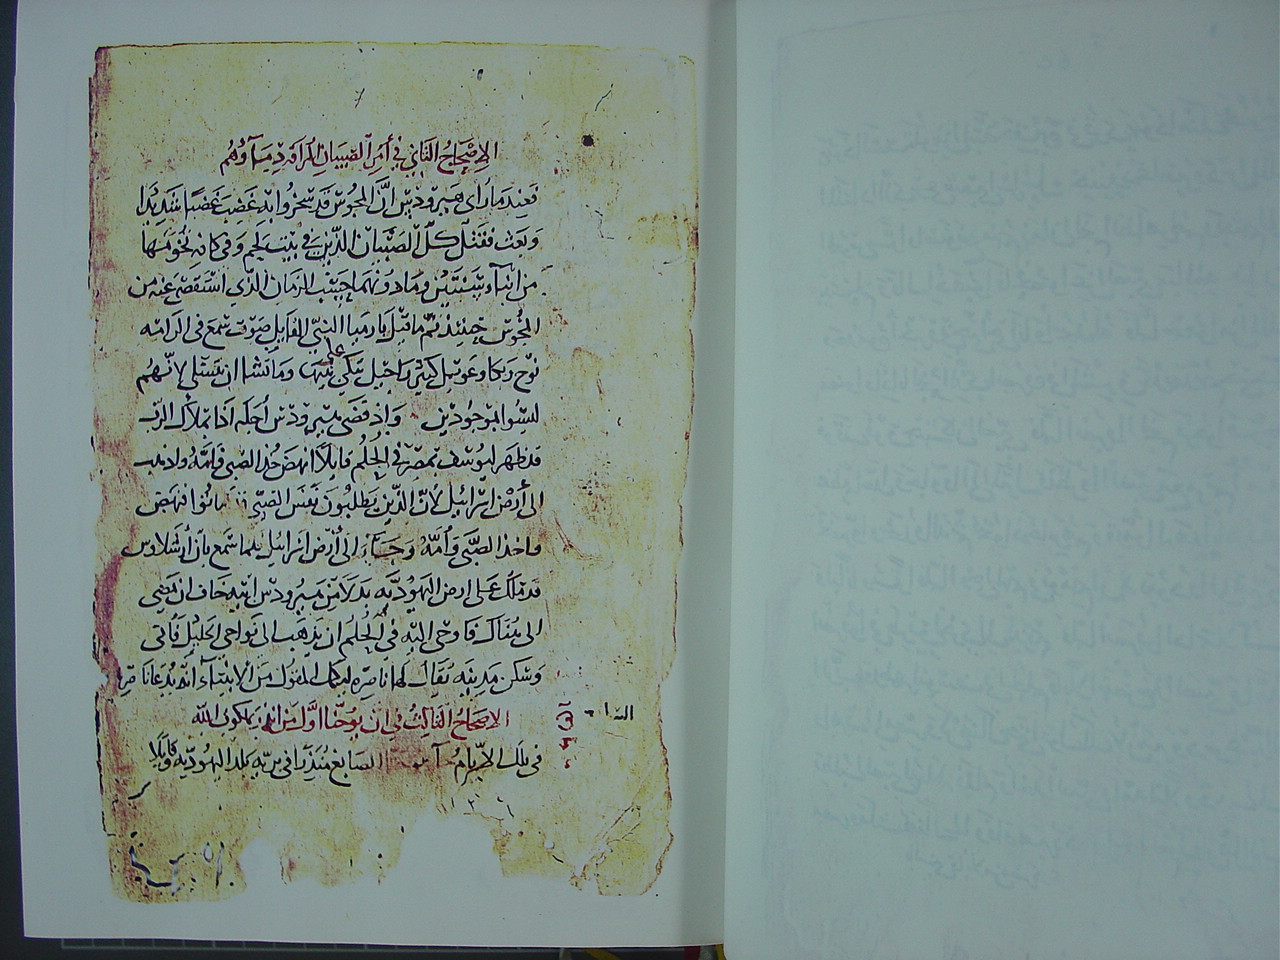 الاصحاح الثاني في أمر الصبيان المراقة دمآوهم
فعندما رأى هيرودس انّ المجوس قد سخروا به غضب غضبًا شديدًا
وبعث فقتل كلّ الصبيان الذين في بيت لحم وفي كافه تخومها
من ابنآء سنتين وما دونهما حسب الزمان الذي استقصى عنه من
المجوس حينئذ تم ما قيل بارميا النبي القايل صوت سمع في الرامه
نوح وبكا وعويل كثير راحيل تبكي على بنيها وما تشا ان تتسلى لانهم
ليسوا موجودين واذ قضى هيرودس اجله اذا بملاك الرب
قد ظهر ليوسف بمصر في الحلم قايلًا انهض خذ الصبي وامّه واذهب
الى أرض اسرائيل لأن الذين يطلبون نفس الصبي ماتوا فنهض
واخذ الصبّي وأمّه وجآء الى أرض اسرائيل فلما سمع بان أرشلاوس
قد ملك على ارض اليهوديّه بدلا من هيرودس ابيه خاف ان يمضي
الى هناك فاوحى اليه في الحلم ان يذهب الى نواحي الجليل فأتى
وسكن مدينه يقال لها ناصره ليكمل المقول من الانبيآء انه يدعا ناصريا
الاصحاح الثالث في ان يوحنا اوّل من انذر بملكوت الله
في تلك الايّام الصابغ منذرًا في بريّه بلد اليهوديّه وقايلا